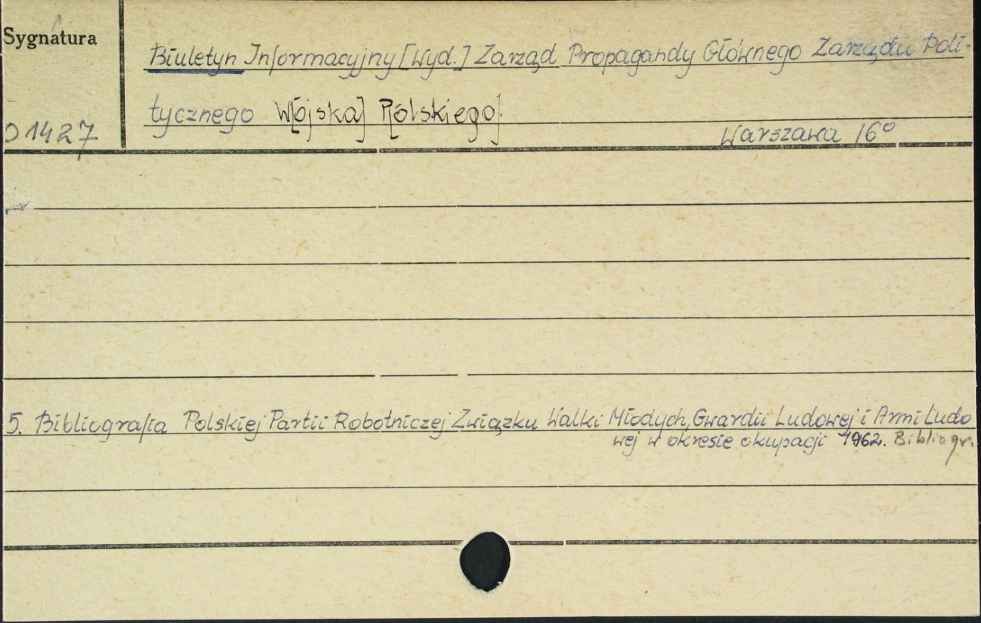 Sygnatura
Biuletyn Informacyjny [Wyd.] Zarząd Propagandy Głównego Zarządu Poli-
tycznego W[ojska] P[olskiego]
01427
Warszawa 16°
5. Bibliografia Polskiej Partii Robotniczej Związku Walki Młodych, Gwardii Ludowej i Armi Ludo
wej w okresie okupacji 1962. Bibliogr.